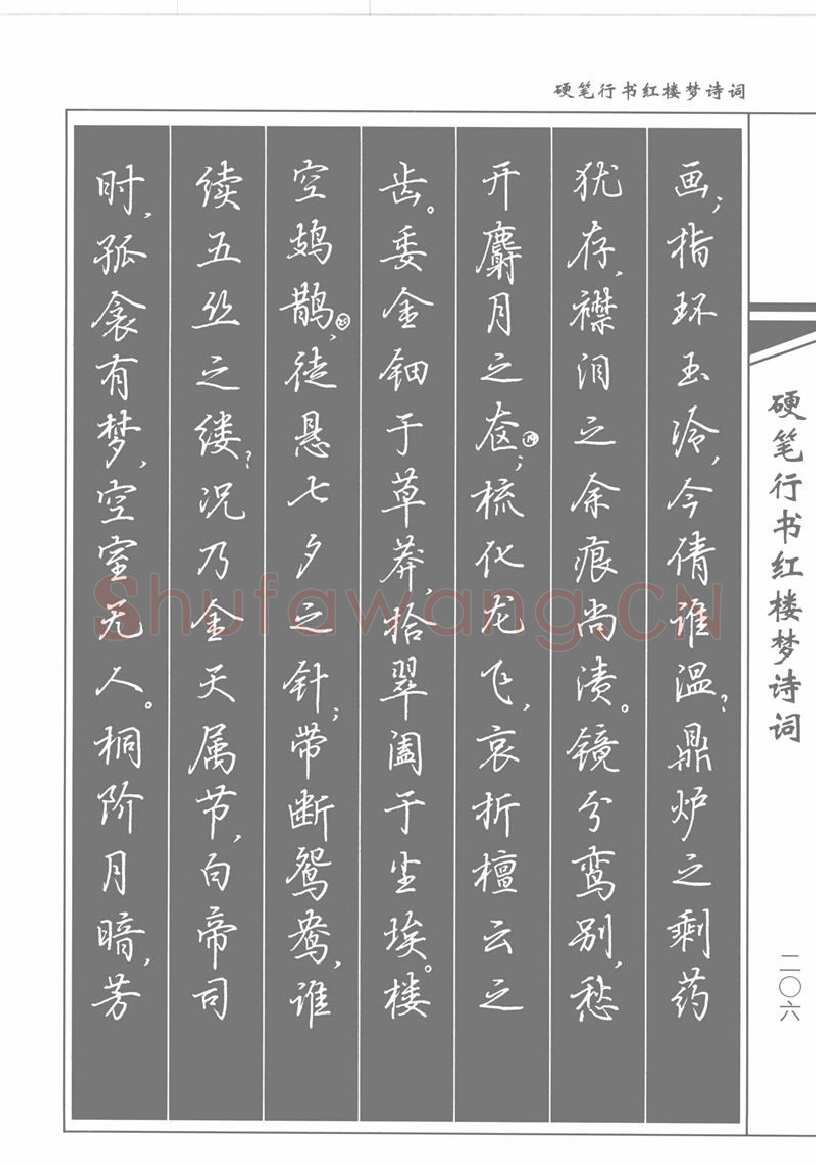 硬笔行书红楼梦诗词
画；指环玉冷，今倩谁温？鼎炉之剩药
犹存，襟泪之余痕尚渍。镜分鸾别，愁
开麝月之奁；梳化龙飞，哀折檀云之
齿。委金钿于草莽，拾翠阖于尘埃。楼
空鳷鹊，徒悬七夕之针；带断鸳鸯，谁
续五丝之缕？况乃金天属节，白帝司
时，孤衾有梦，空室无人。桐阶月暗，芳
硬笔行书红楼梦诗词
二〇六
Shufawang.CN